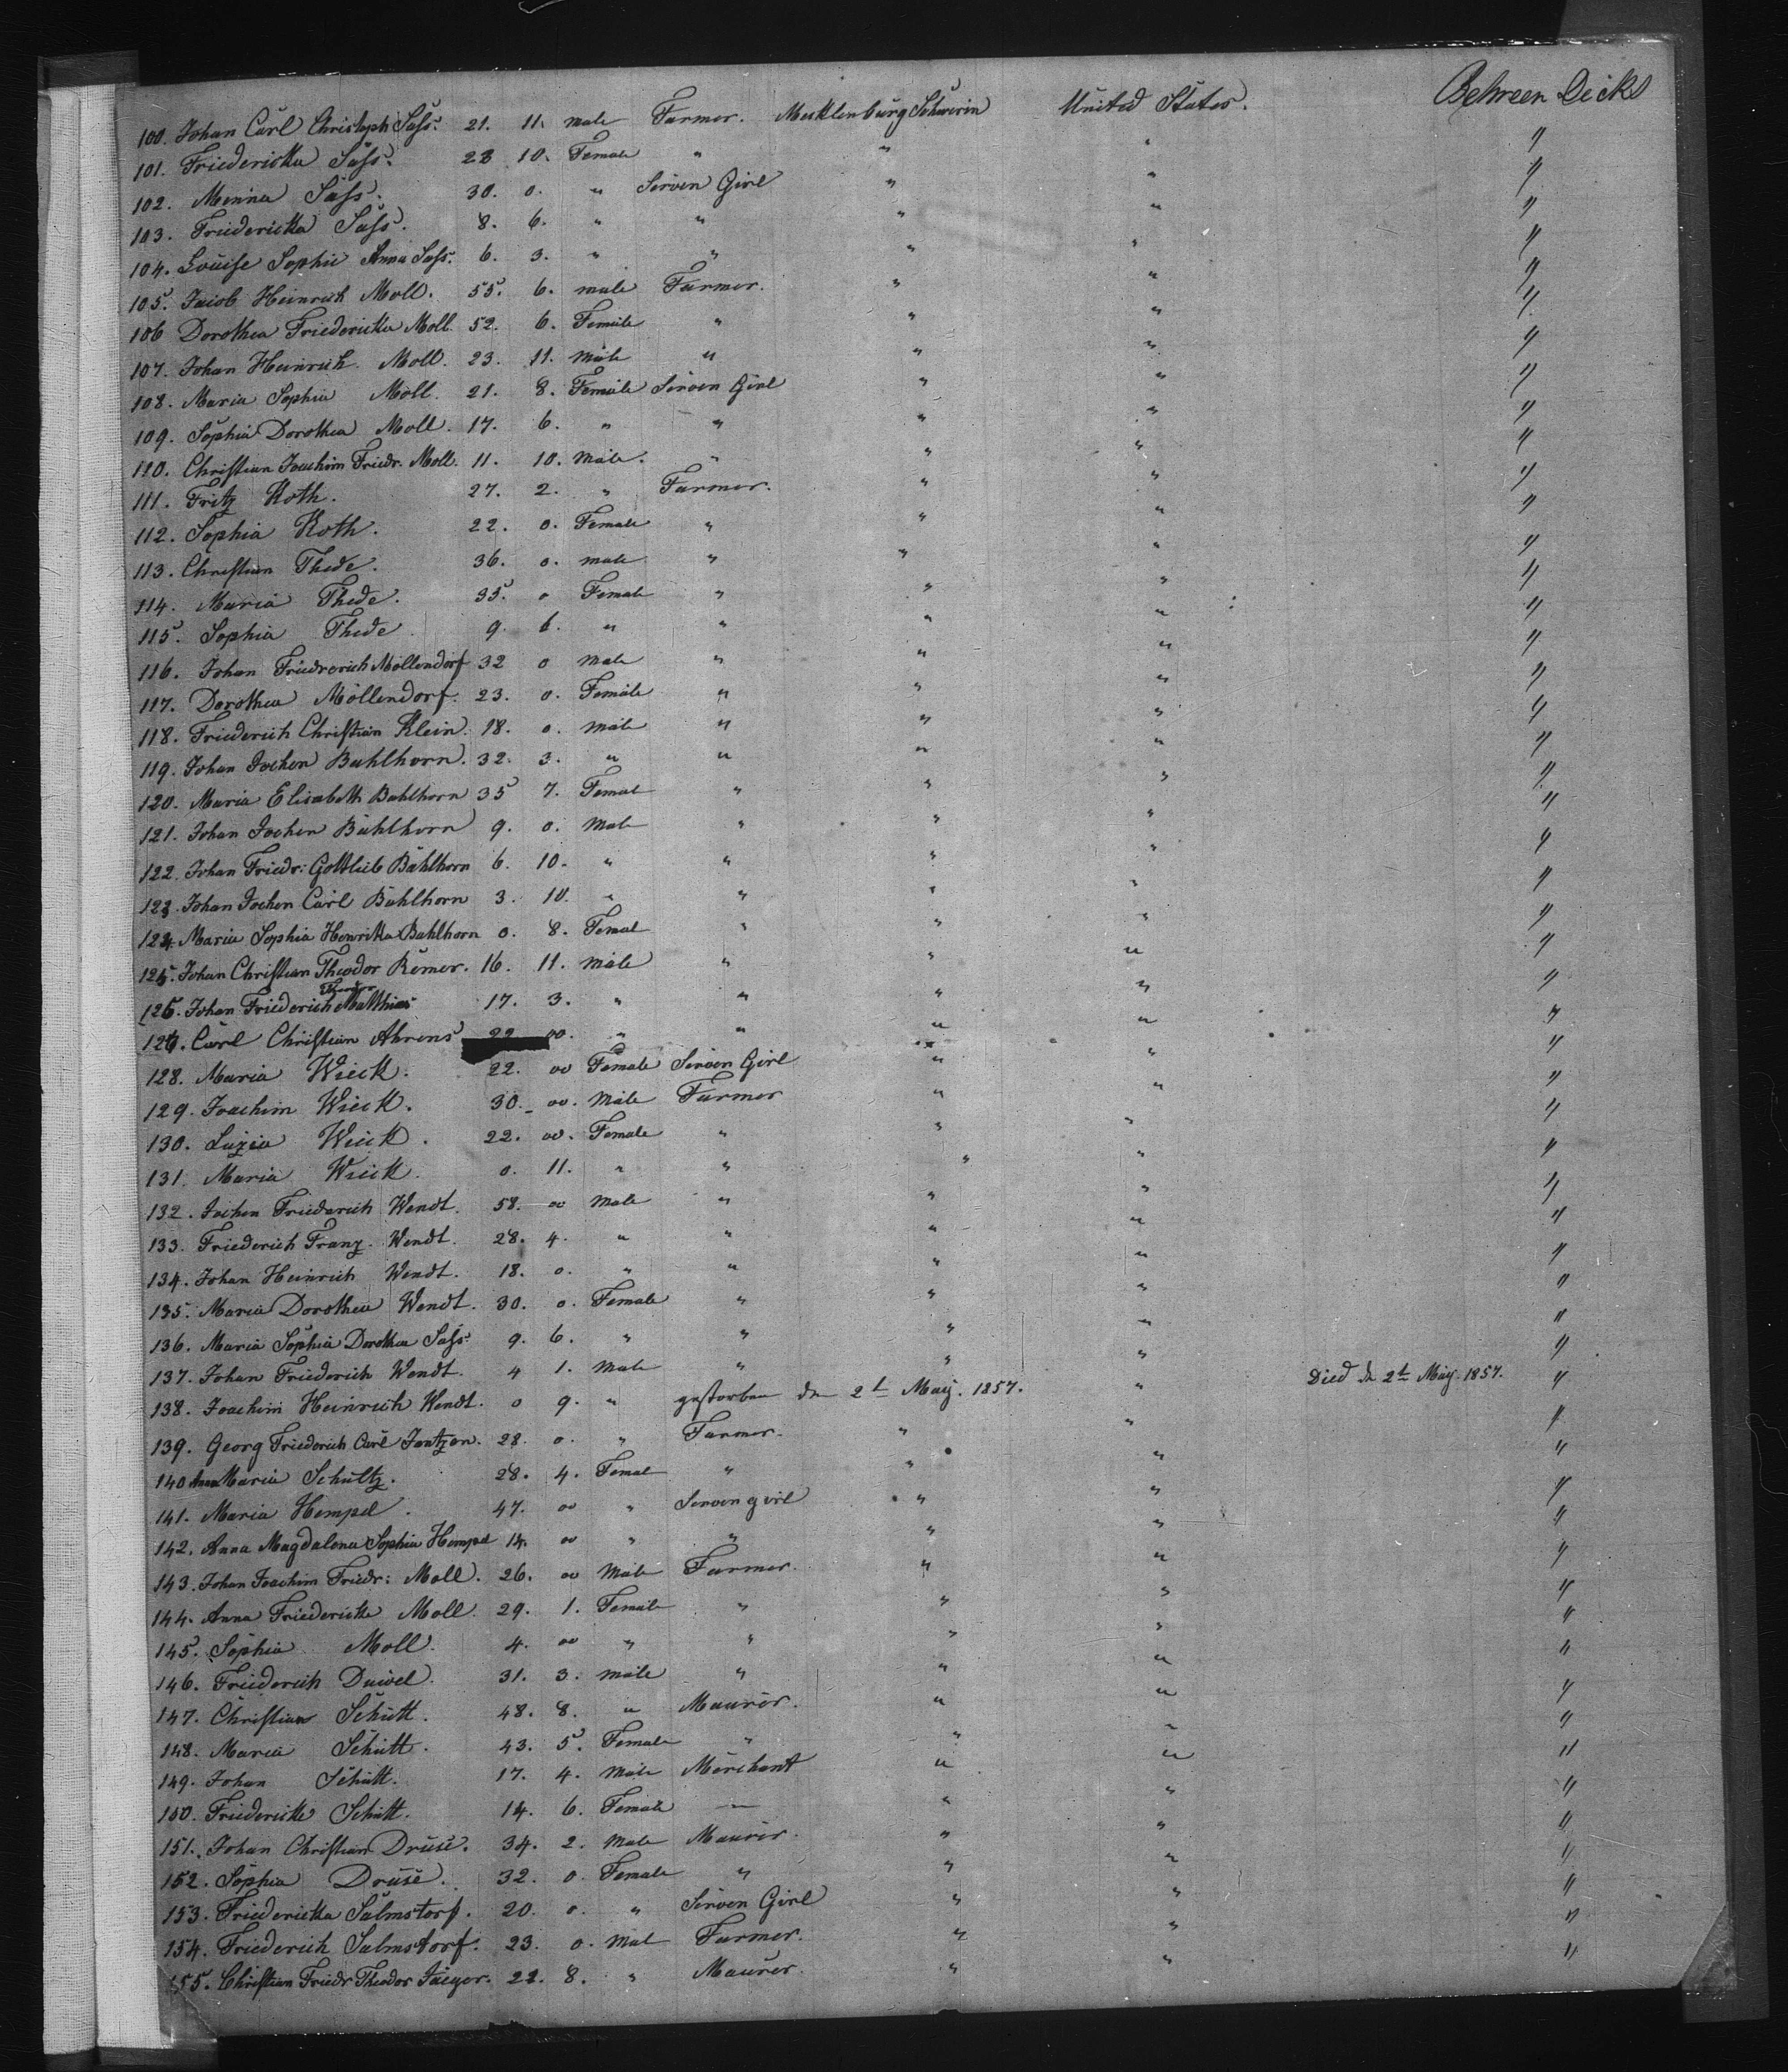 100. Johan Carl Christoph Sass. 21. 11. male Farmer. Mecklenburg Schwerin United States. Betwen Decks
101. Friedericka Sass. 28 10. Female " " " "
102. Minna Sass. 30. 0. " Serven Girl " " "
103. Friedericka Sass. 8. 6. " " " " "
104. Louise Sophie Anna Sass. 6. 3. " " " " "
105. Jacob Heinrich Moll. 55. 6. male Farmer. " " "
106 Dorothea Friedericka Moll. 52. 6. Female " " " "
107. Johan Heinrich Moll. 23. 11. male " " " "
108. Maria Sophia Moll. 21. 8. Female Serven Girl " " "
109. Sophia Dorothea Moll. 17. 6. " " " " "
110. Christian Joachim Friedr. Moll. 11. 10. male. " " " "
111. Fritz Koth. 27. 2. " Farmer. " " "
112. Sophia Koth. 22. 0. Female " " " "
113. Christian Thede. 36. 0. male " " " "
114. Maria Thede. 35. 0 Female " " " "
115. Sophia Thede. 9. 6. " " " " "
116. Johan Friedrerich Möllendorf 32 0 male " " " "
117. Dorothea Möllendorf. 23. 0. Female " " " "
118. Friederich Christian Klein. 18. 0. male " " " "
119. Johan Jochen Bahlhorn. 32. 3. " " " " "
120. Maria Elisabeth Bahlhorn 35 7. Femal " " " "
121. Johan Jochen Bahlhorn 9. 0. Male " " " "
122. Johan Friedr: Gottlieb Bahlhorn 6. 10. " " " " "
123. Johan Jochen Carl Bahlhorn 3. 10. " " " " "
124. Maria Sophia Henritta Bahlhorn 0. 8. Femal " " " "
125. Johan Christian Theodor Remer. 16. 11. male " " " "
126. Johan Friederich Matthias 17. 3. " " " " "
Carl Christian Ahrens 22 00. " " " " "
128. Maria Wieck. 22. 00 Female Serven Girl " " "
129. Joachim Wieck. 30. 00. Male Farmer " " "
130. Luzia Wieck. 22. 00. Female " " " "
131. Maria Wieck. 0. 11. " " " " "
132. Jochen Friederich Wendt. 58. 00 Male " " " "
133. Friederich Franz Wendt. 28. 4. " " " " "
134. Johan Heinrich Wendt. 18. 0. " " " " "
135. Maria Dorothea Wendt. 30. 0. Female " " " "
136. Maria Sophia Dorothea Sass. 9. 6. " " " " "
137. Johan Friederich Wendt. 4 1. Male " " " "
138. Joachim Heinrich Wendt. 0 9. " gestorben den 2t May. 1857. " Died de 2th May. 1857. "
139. Georg Friederich Carl Jantzen. 28. 0. " Farmer. " " "
140 Anna Maria Schultz. 28. 4. Femal " " " "
141. Maria Hempel. 47. 00 " Serven girl " " "
142. Anna Magdalena Sophia Hempel 14. 00 " " " " "
143. Johan Joachim Friedr: Moll. 26. 00 Male Farmer. " " "
144. Anna Friedericka Moll. 29. 1. Female " " " "
145. Sophia Moll. 4. 00 " " " " "
146. Friederich Duwel. 31. 3. male " " " "
147. Christian Schütt. 48. 8. " Maurer. " " "
148. Maria Schütt. 43. 5. Female " " " "
149. Johan Schütt. 17. 4. Male Merchant " " "
150. Friedericke Schütt. 14. 6. Female — " " "
151. Johan Christian Druse. 34. 2. Male Maurer. " " "
152. Sophia Druse. 32. 0. Female " " " "
153. Friedericka Salmstorf. 20. 0. " Serven Girl " " "
154. Friederich Salmstorf. 23. 0. Mal Farmer. " " "
155. Christian Friedr Theodor Jaeger. 22. 8. " Maurer. " "